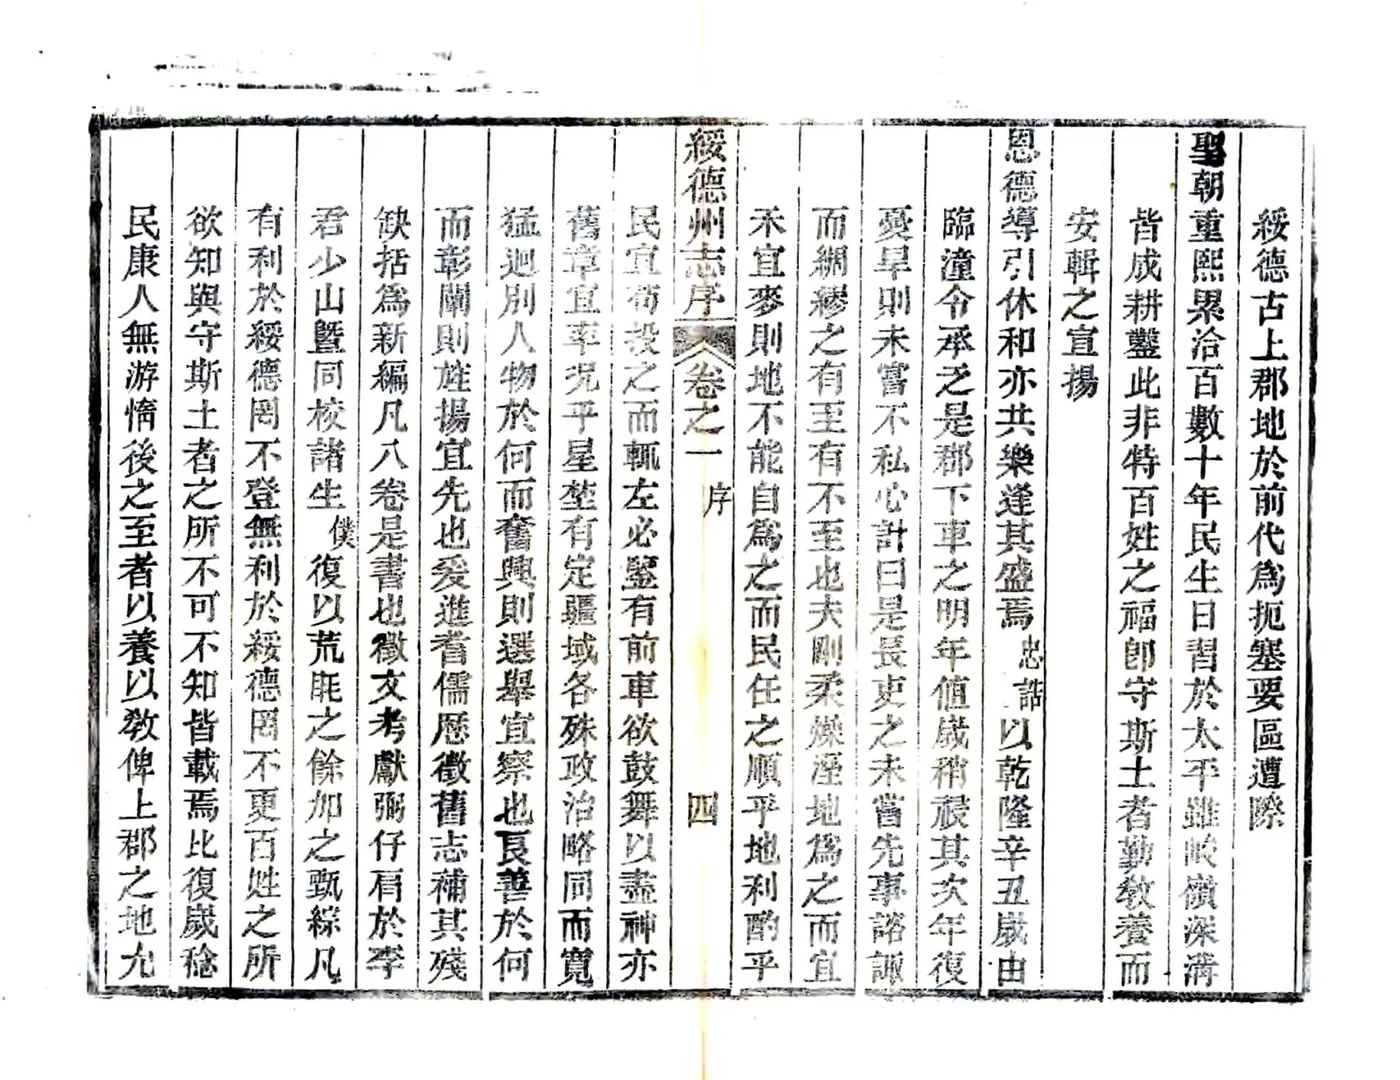 綏德古上郡地於前代為扼塞要區遭際
聖朝重熙累洽百數十年民生日習於太平雖峻嶺深溝
皆成耕鑿此非特百姓之福卽守斯土者勤敎養而
安輯之宣揚
恩德導引休和亦共樂逢其盛焉忠誥以乾隆辛丑歲由
臨潼令承乏是郡下車之明年值歲稍祲其次年復
憂旱則未嘗不私心計曰是長吏之未嘗先事諮諏
而綢繆之有至有不至也夫剛柔燥溼地為之而宜
禾宜麥則地不能自為之而民任之順乎地利酌乎
綏德州志序 卷之一 序 四
民宜苟投之而輒左必鑒有前車欲鼓舞以盡神亦
舊章宜率況乎星埜有定疆域各殊政治略同而寬
猛迥別人物於何而奮興則選舉宜察也艮善於何
而彰闡則旌揚宜先也爰進耆儒歷徵舊志補其殘
缺括為新編凡八卷是書也徵文考獻弼仔肩於李
君少山曁同校諸生僕復以荒眊之餘加之甄綜凡
有利於綏德罔不登無利於綏德罔不更百姓之所
欲知與守斯土者之所不可不知皆載焉比復歲稔
民康人無游惰後之至者以養以敎俾上郡之地允